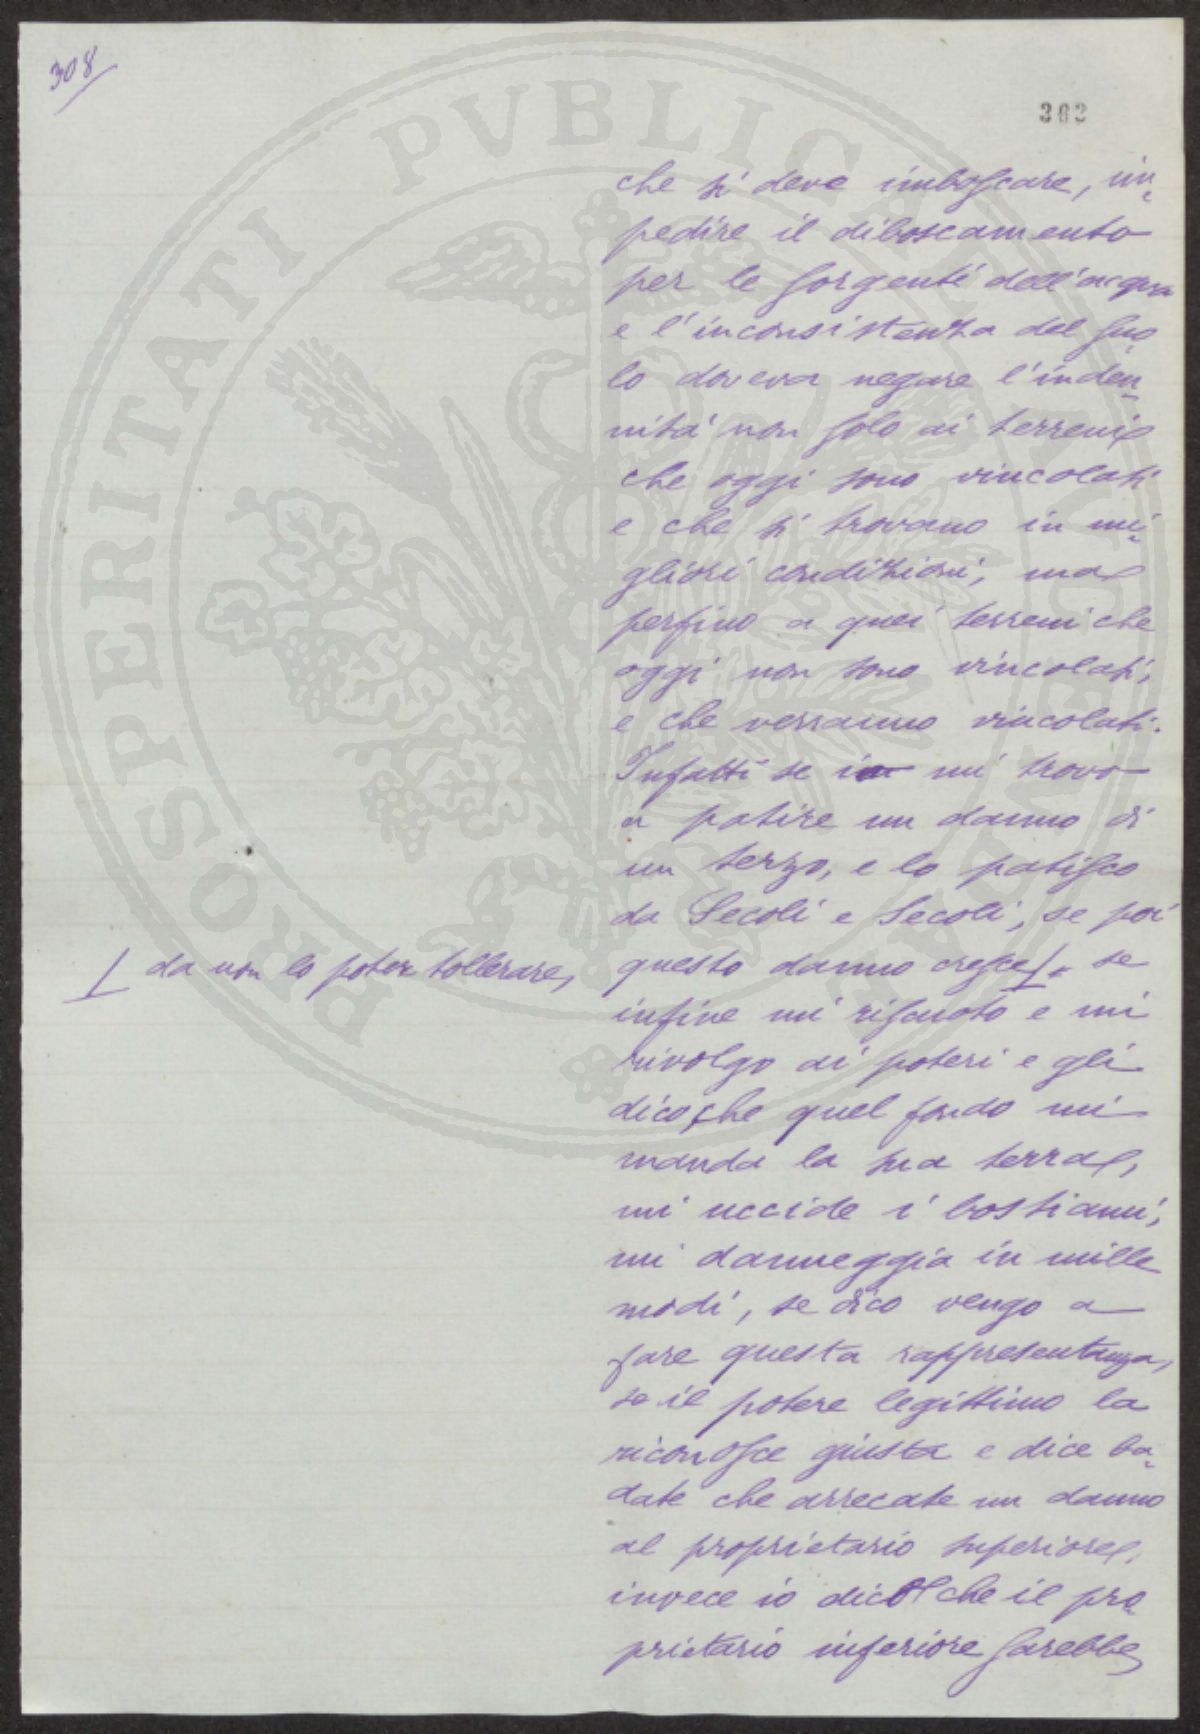 308
363
che si deve imboscare, im-
pedire il diboscamento
per le sorgenti dell'acqua
e l'inconsistenza del suo-
lo doveva negare l'inden-
nità non solo ai terreni
che oggi sono vincolati
e che si trovano in mi-
gliori condizioni, ma
perfino a quei terreni che
oggi non sono vincolati,
e che verranno vincolati.
Infatti se io mi trovo
a patire un danno di
un terzo, e lo patisco
da Secoli e Secoli, se poi
questo danno cresce /. se
/ da non lo poter tollerare,
infine mi riscuoto e mi
rivolgo ai poteri e gli
dico, che quel fondo mi
manda la sua terra,
mi uccide i bestiami,
mi danneggia in mille
modi, se dico vengo a
fare questa rappresentanza,
se il potere legittimo la
riconosce giusta e dice ba-
date che arrecate un danno
al proprietario superiore,
invece io dico che il pro-
prietario inferiore sarebbe
PROSPERITATI PVBLICAE AVGENDAE